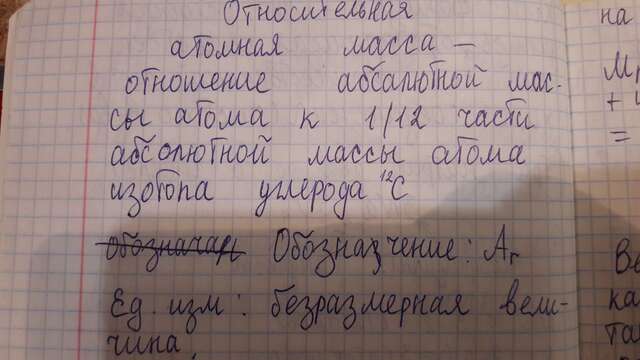 Относительная
атомная масса —
отношение абсолютной мас-
сы атома к 1/12 части
абсолютной массы атома
изотопа углерода ¹²C
Обозначение: Ar
Ед. изм: безразмерная вели-
чина.
на
Mr
+
=
Ве
ка
та